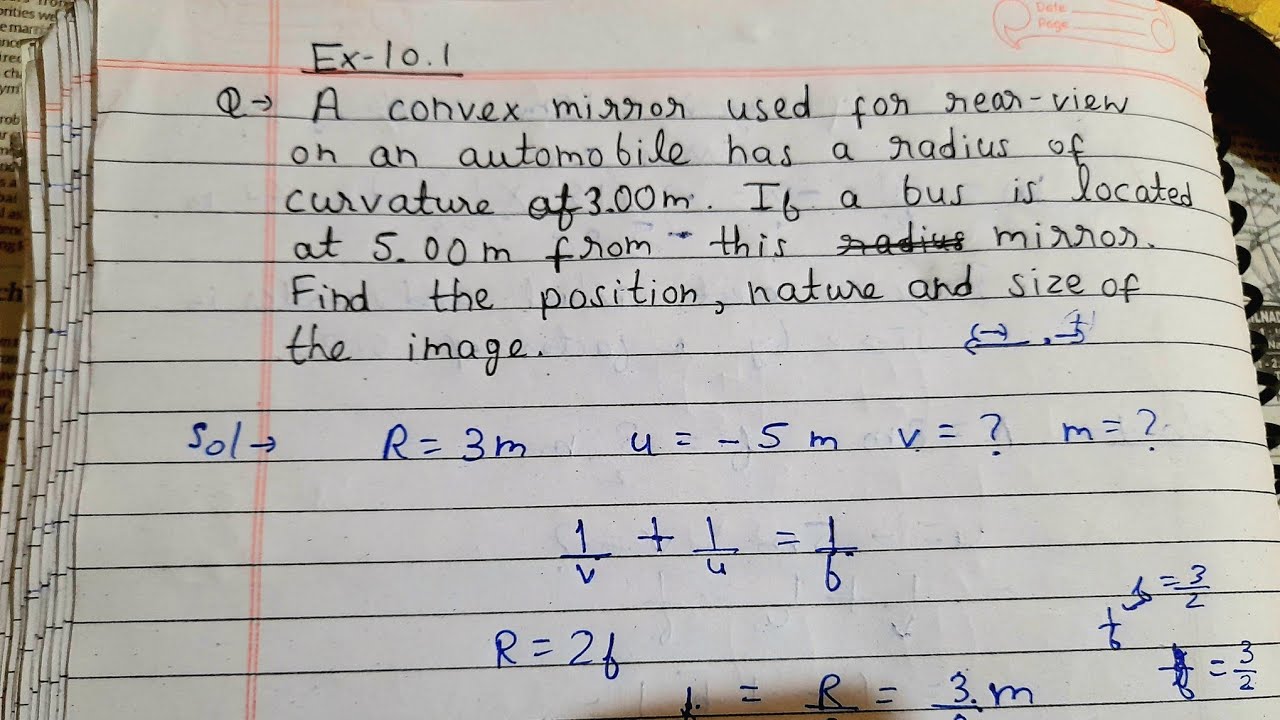 Date
Page
Ex-10.1
Q→ A convex mirror used for rear-view
on an automobile has a radius of
curvature of 3.00m. If a bus is located
at 5.00m from this radius mirror.
Find the position, nature and size of
the image.
Sol→ R = 3m u = -5 m v = ? m = ?
1/v + 1/u = 1/f
f = 3/2
R = 2f
f = 3/2
f = R = 3 m